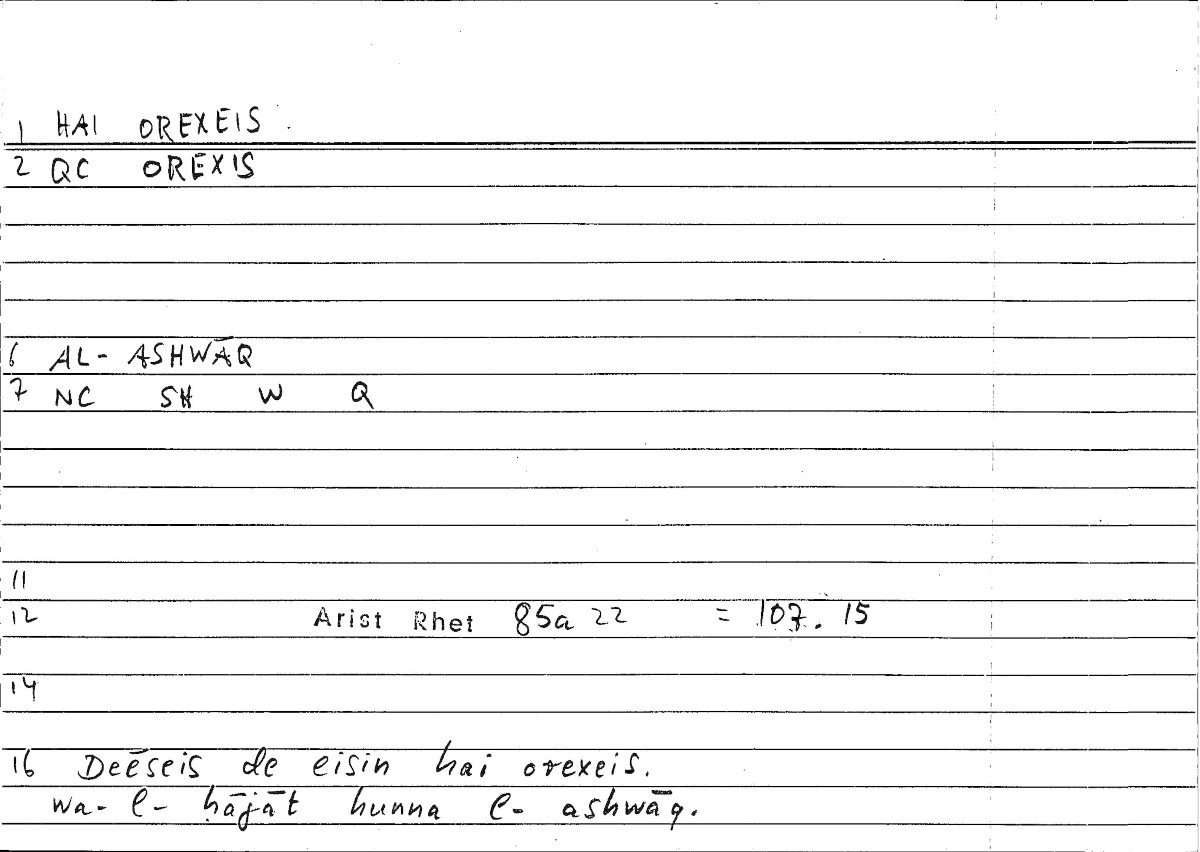 1 HAI OREXEIS.
2 QC OREXIS
6 AL- ASHWĀQ
7 NC SH W Q
11
12 Arist Rhet 85a 22 = 107. 15
14
16 Deēseis de eisin hai orexeis.
wa- l- ḥājāt hunna l- ashwāq.